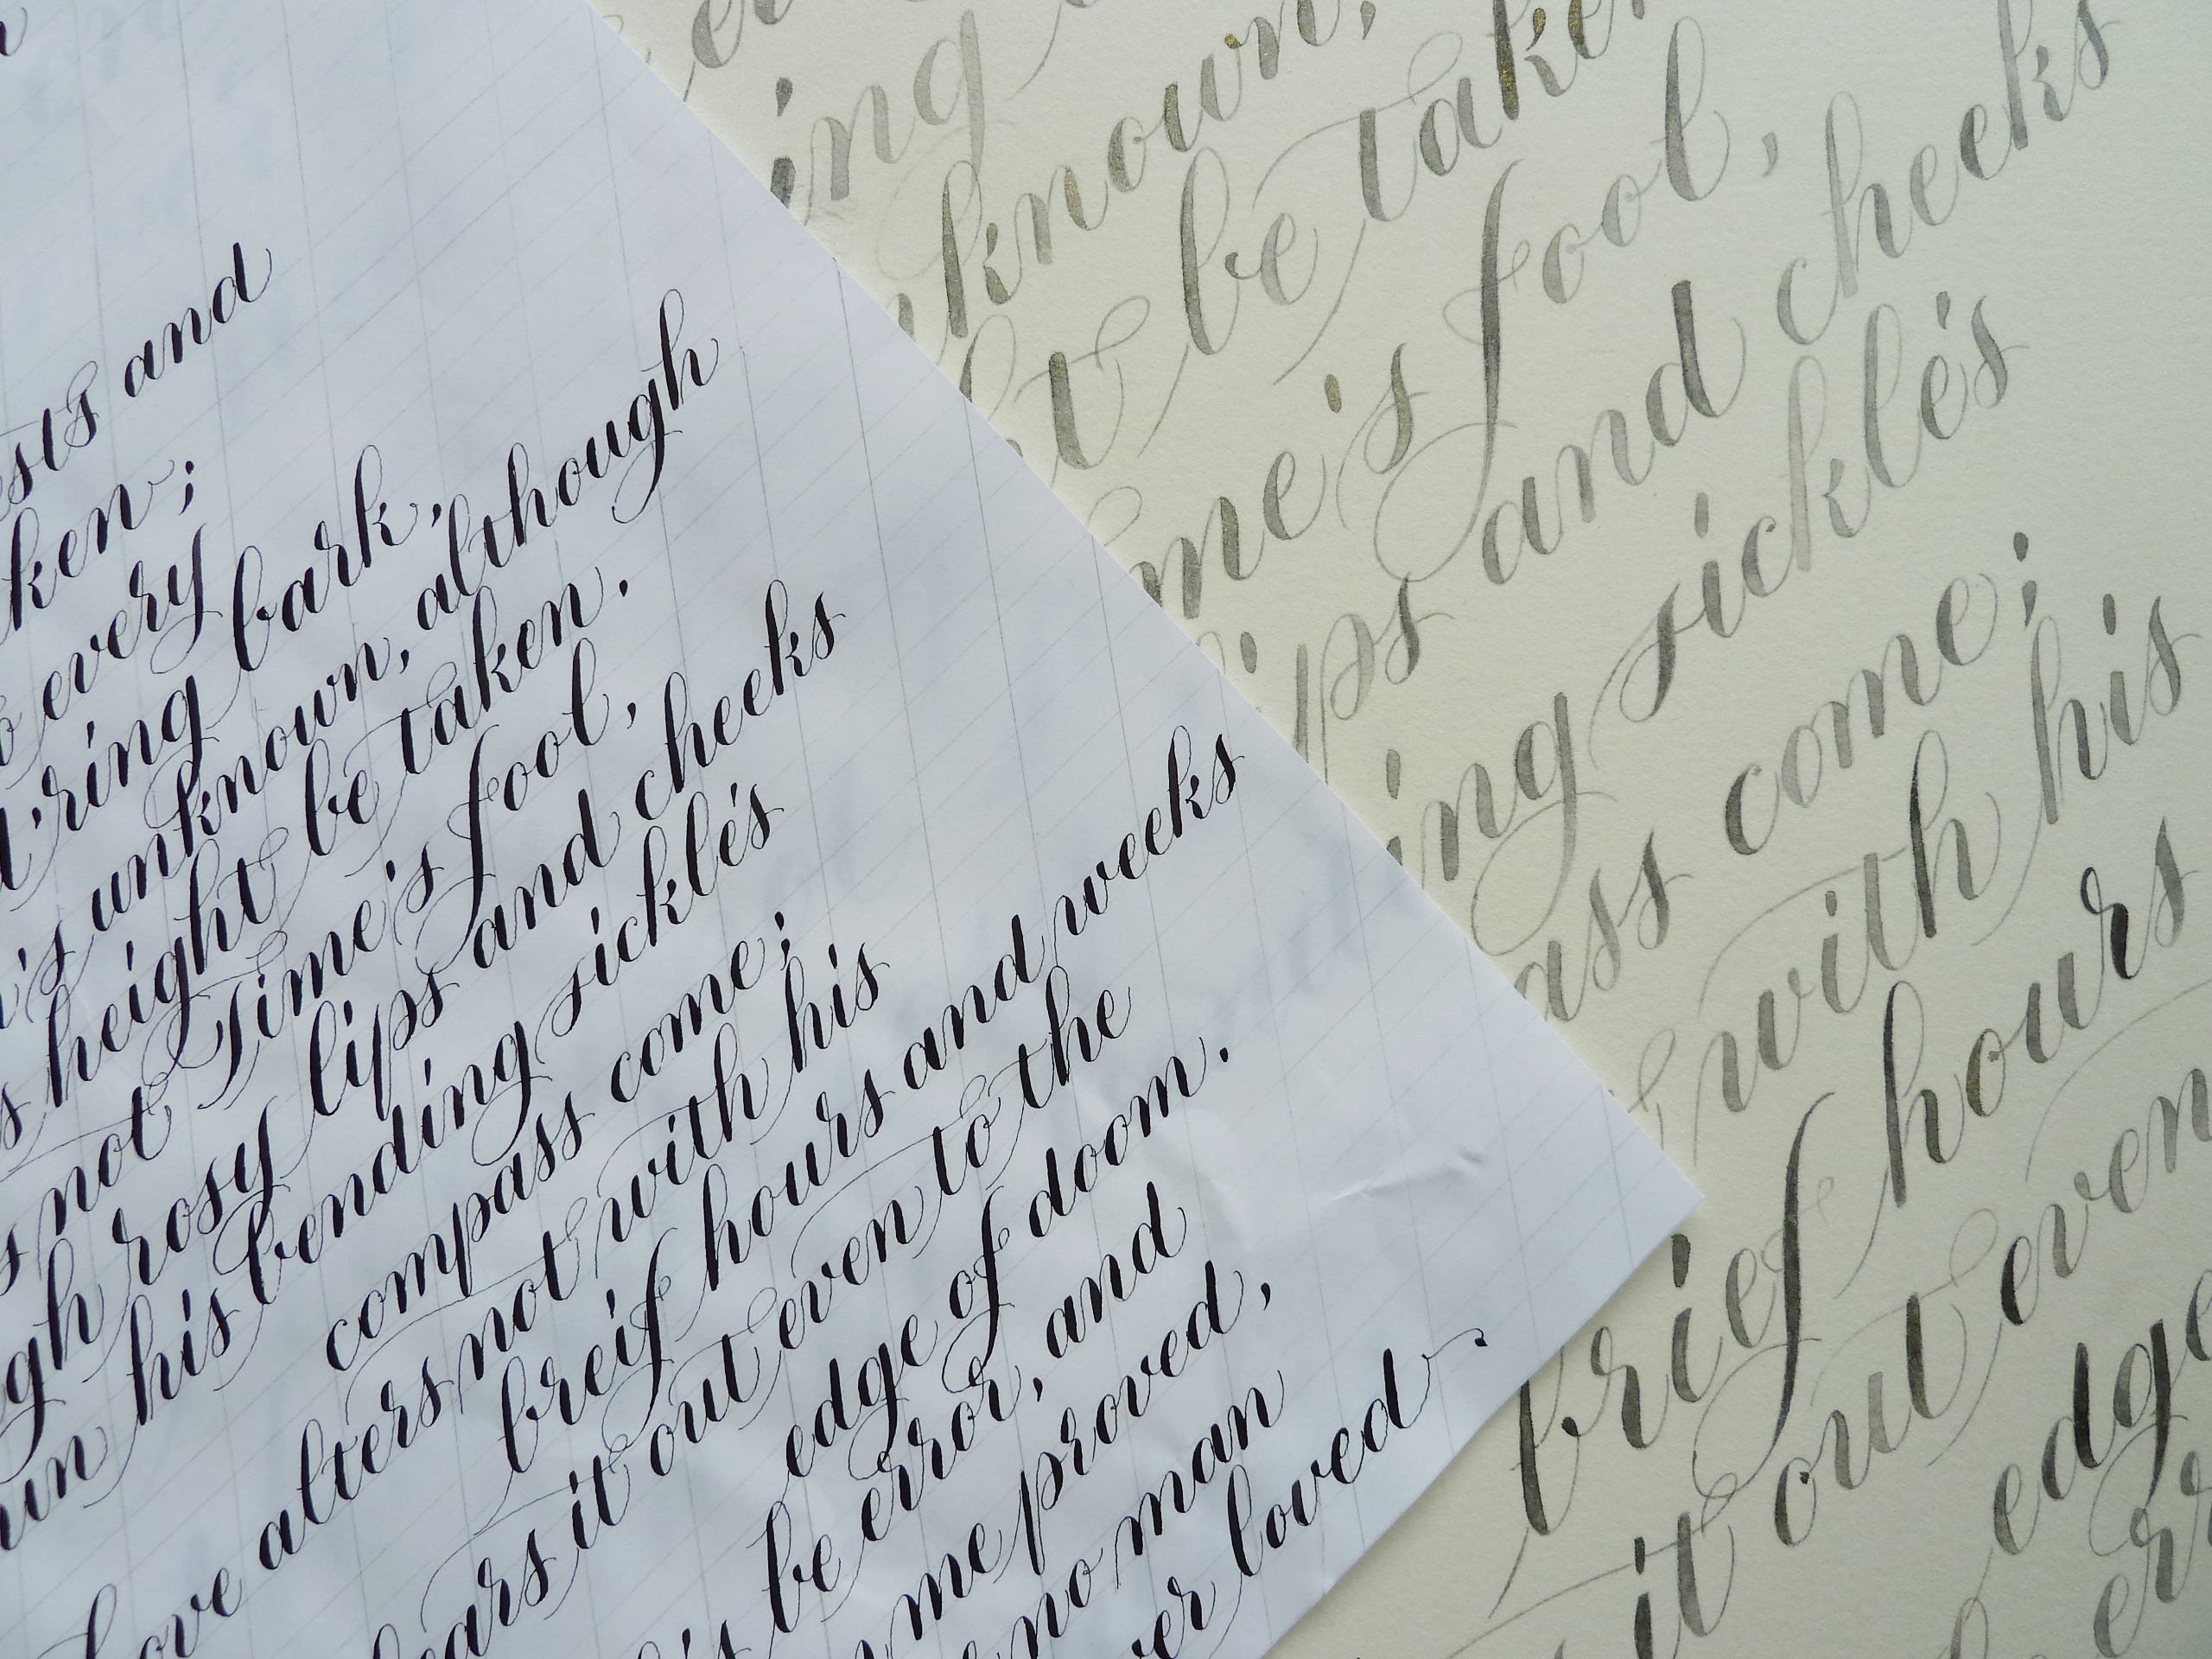 ests and
ken;
every
'ring bark,
's unknown, although
height be taken.
not Time's fool,
gh rosy lips and cheeks
in his bending sickle's
compass come;
love alters not with his
breif hours and weeks
ears it out even to the
edge of doom.
is be error, and
me proved,
no man
er loved.
ing
known,
ht be taken
me's fool,
ips and cheeks
ing sickle's
ass come;
with his
brief hours
it out even
edge
err